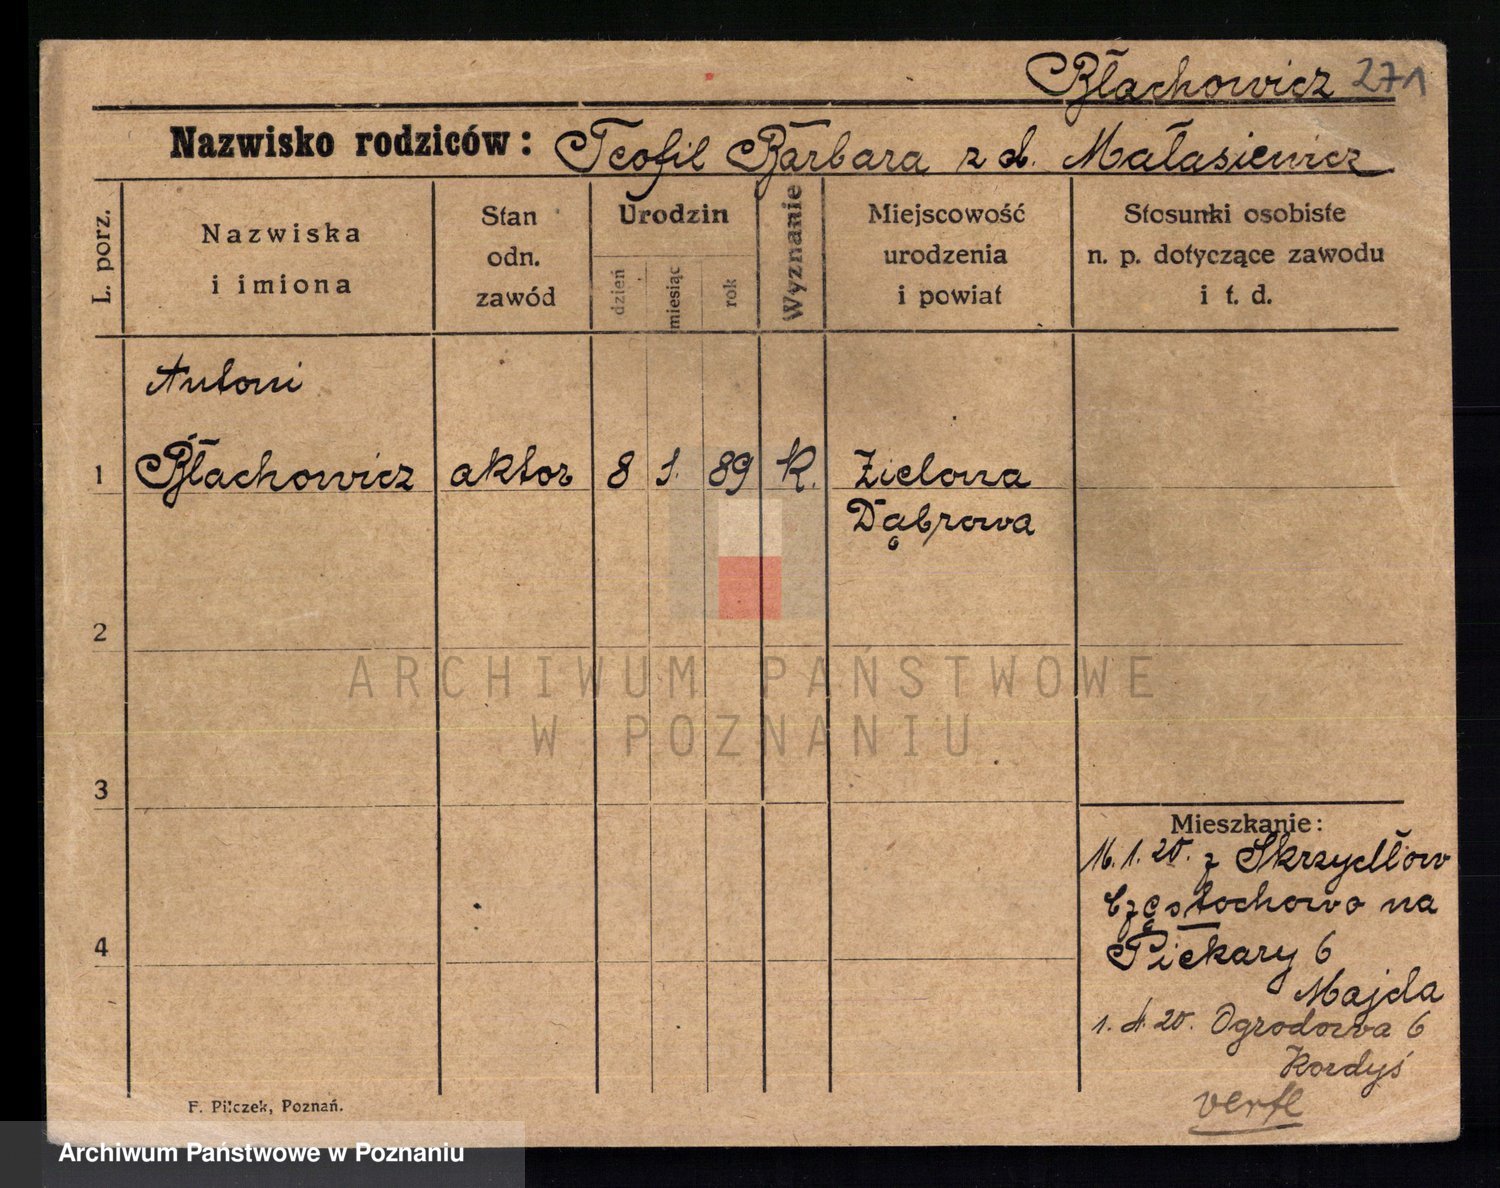 Błachowicz 271
Nazwisko rodziców: Teofil Barbara z d. Małasiewicz
L. porz.
Nazwiska
i imiona
Stan
odn.
zawód
Urodzin
dzień
miesiąc
rok
Wyznanie
Miejscowość
urodzenia
i powiat
Stosunki osobiste
n. p. dotyczące zawodu
i t. d.
Antoni
1 Błachowicz aktor 8 1. 89 k. Zielona
Dąbrowa
2
ARCHIWUM PAŃSTWOWE
W POZNANIU
3
Mieszkanie:
16.1.20. z Skrzydłów
Częstochowo na
Piekary 6
4
Majda
1. 4. 20. Ogrodowa 6
Kordyś
F. Pilczek, Poznań.
Archiwum Państwowe w Poznaniu